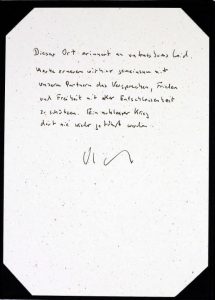 Dieser Ort erinnert an unfassbares Leid.
Heute erneuern wir hier gemeinsam mit
unseren Partnern das Versprechen, Frieden
und Freiheit mit aller Entschlossenheit
zu schützen. Ein nuklearer Krieg
darf nie wieder geführt werden.